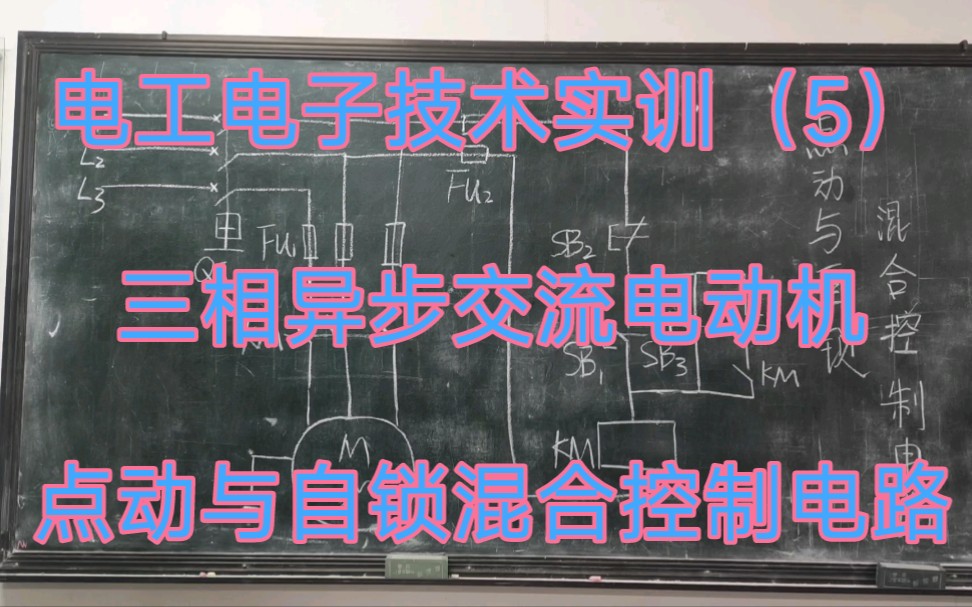 电工电子技术实训（5）
L2
L3
FU2
FU1
SB2
三相异步交流电动机
SB1
SB3
KM
M
KM
点动与自锁混合控制电路
动与
锁
混合控制电